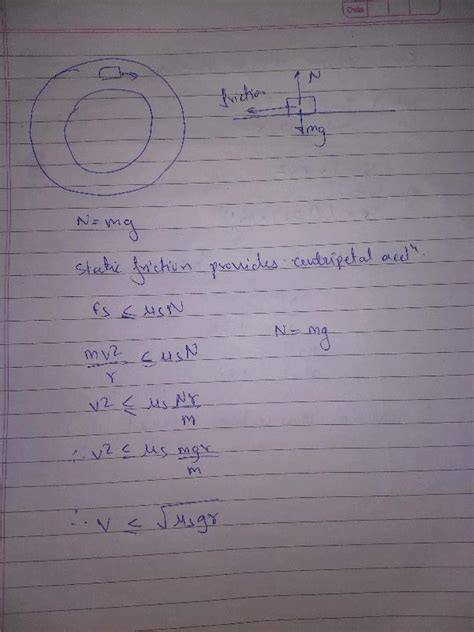 Date
N
friction
mg
N = mg
Static friction provides centripetal accⁿ.
fs ≤ μsN
N = mg
mv²/r ≤ μsN
v² ≤ μs Nr/m
∴ v² ≤ μs mgr/m
∴ v ≤ √μsgr